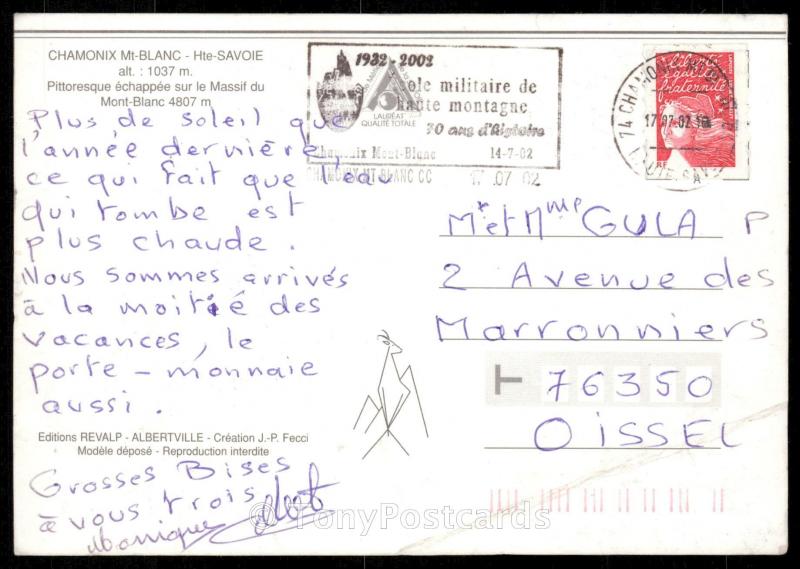 CHAMONIX Mt-BLANC - Hte-SAVOIE
alt. : 1037 m.
Pittoresque échappée sur le Massif du
Mont-Blanc 4807 m
Plus de soleil que
l'année dernière,
ce qui fait que l'eau
qui tombe est
plus chaude.
Nous sommes arrivés
à la moitié des
vacances, le
porte-monnaie
aussi.
Editions REVALP - ALBERTVILLE - Création J.-P. Fecci
Modèle déposé - Reproduction interdite
Grosses Bises
à vous trois
Monique
1932-2002
cole militaire de
haute montagne
LAURÉAT
QUALITÉ TOTALE
70 ans d'histoire
Chamonix Mont-Blanc 14-7-02
CHAMONIX MT BLANC CC 17 .07 02
17.07.02
liberté
égalité
fraternité
RF
Mr et Mme GULA P
2 Avenue des
Marronniers
76350
OISSEL
© TonyPostcards